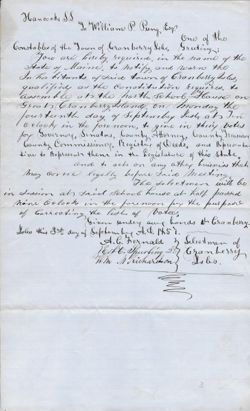 Hancock SS
To William P. Preny, Esq
One of the
Constables of the Town of Cranberry Isles, Greeting,
You are hereby required, in the name of the
State of Maine, to Notify and warn the
In habitants of said Town of Cranberry Isles,
qualified as the Constitution requires to
assemble at the School House on
Great Cranberry Island, on Monday the
fourteenth day of September Inst, at Ten
O clock in the forenoon, to give in their Votes
for Governor, Senators, County Attorney, County Treasurer
County Commissioner, Register of Deeds, and Representa
tive to represent them in the Legislature of this State,
and to act on any other business that
may come legally before said Meeting
The Selectmen will be
in Session at said School house at half passed
Nine O clock in the forenoon for the purpose
of correcting the list of Voters,
Given under our hands at Cranberry
Isles this 3rd day of September A.D. 1857.
A. C. Fernald
Selectmen of
Spurling
Cranberry
Wm N. Richardson
Isles.